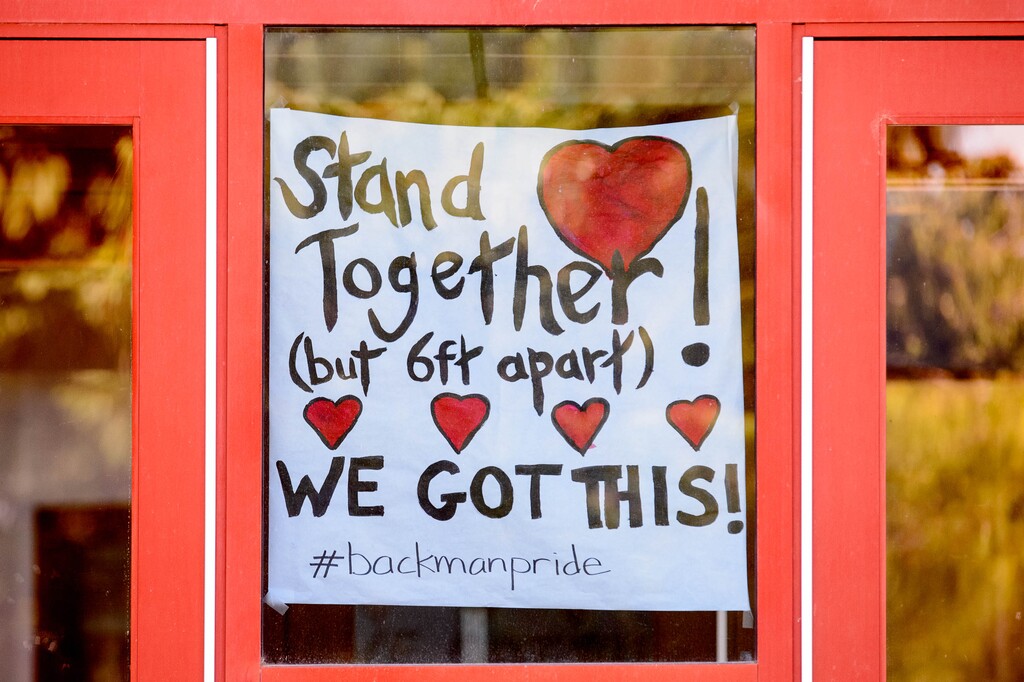 Stand
Together!
(but 6ft apart)
WE GOT THIS!
#backmanpride